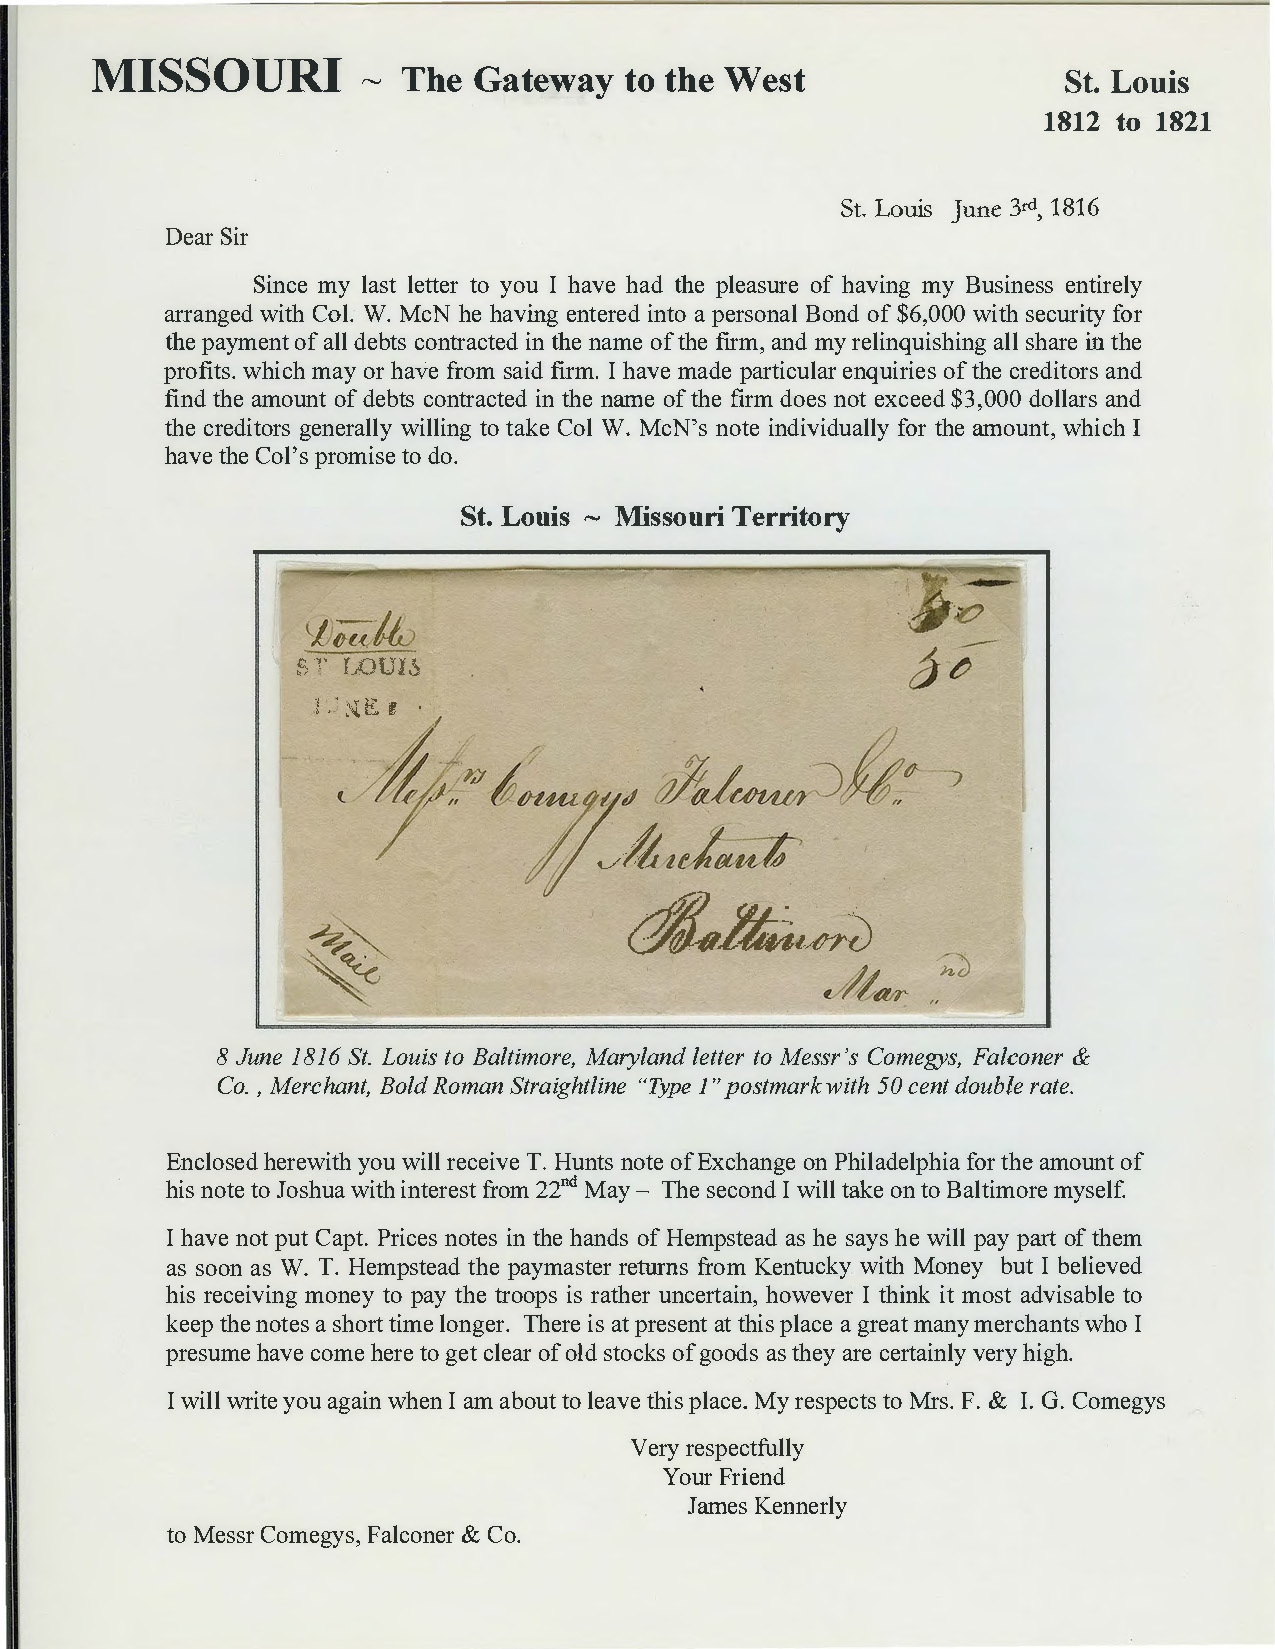 MISSOURI ~ The Gateway to the West
St. Louis
1812 to 1821
St. Louis June 3rd, 1816
Dear Sir
Since my last letter to you I have had the pleasure of having my Business entirely
arranged with Col. W. McN he having entered into a personal Bond of $6,000 with security for
the payment of all debts contracted in the name of the firm, and my relinquishing all share in the
profits. which may or have from said firm. I have made particular enquiries of the creditors and
find the amount of debts contracted in the name of the firm does not exceed $3,000 dollars and
the creditors generally willing to take Col W. McN's note individually for the amount, which I
have the Col's promise to do.
St. Louis ~ Missouri Territory
Double
50
ST LOUIS
50
JUNE
Messrs Comegys Falconer & Co
Merchants
Baltimore
Mail
Mar nd
8 June 1816 St. Louis to Baltimore, Maryland letter to Messr's Comegys, Falconer &
Co. , Merchant, Bold Roman Straightline "Type 1" postmark with 50 cent double rate.
Enclosed herewith you will receive T. Hunts note of Exchange on Philadelphia for the amount of
his note to Joshua with interest from 22nd May – The second I will take on to Baltimore myself.
I have not put Capt. Prices notes in the hands of Hempstead as he says he will pay part of them
as soon as W. T. Hempstead the paymaster returns from Kentucky with Money but I believed
his receiving money to pay the troops is rather uncertain, however I think it most advisable to
keep the notes a short time longer. There is at present at this place a great many merchants who I
presume have come here to get clear of old stocks of goods as they are certainly very high.
I will write you again when I am about to leave this place. My respects to Mrs. F. & I. G. Comegys
Very respectfully
Your Friend
James Kennerly
to Messr Comegys, Falconer & Co.